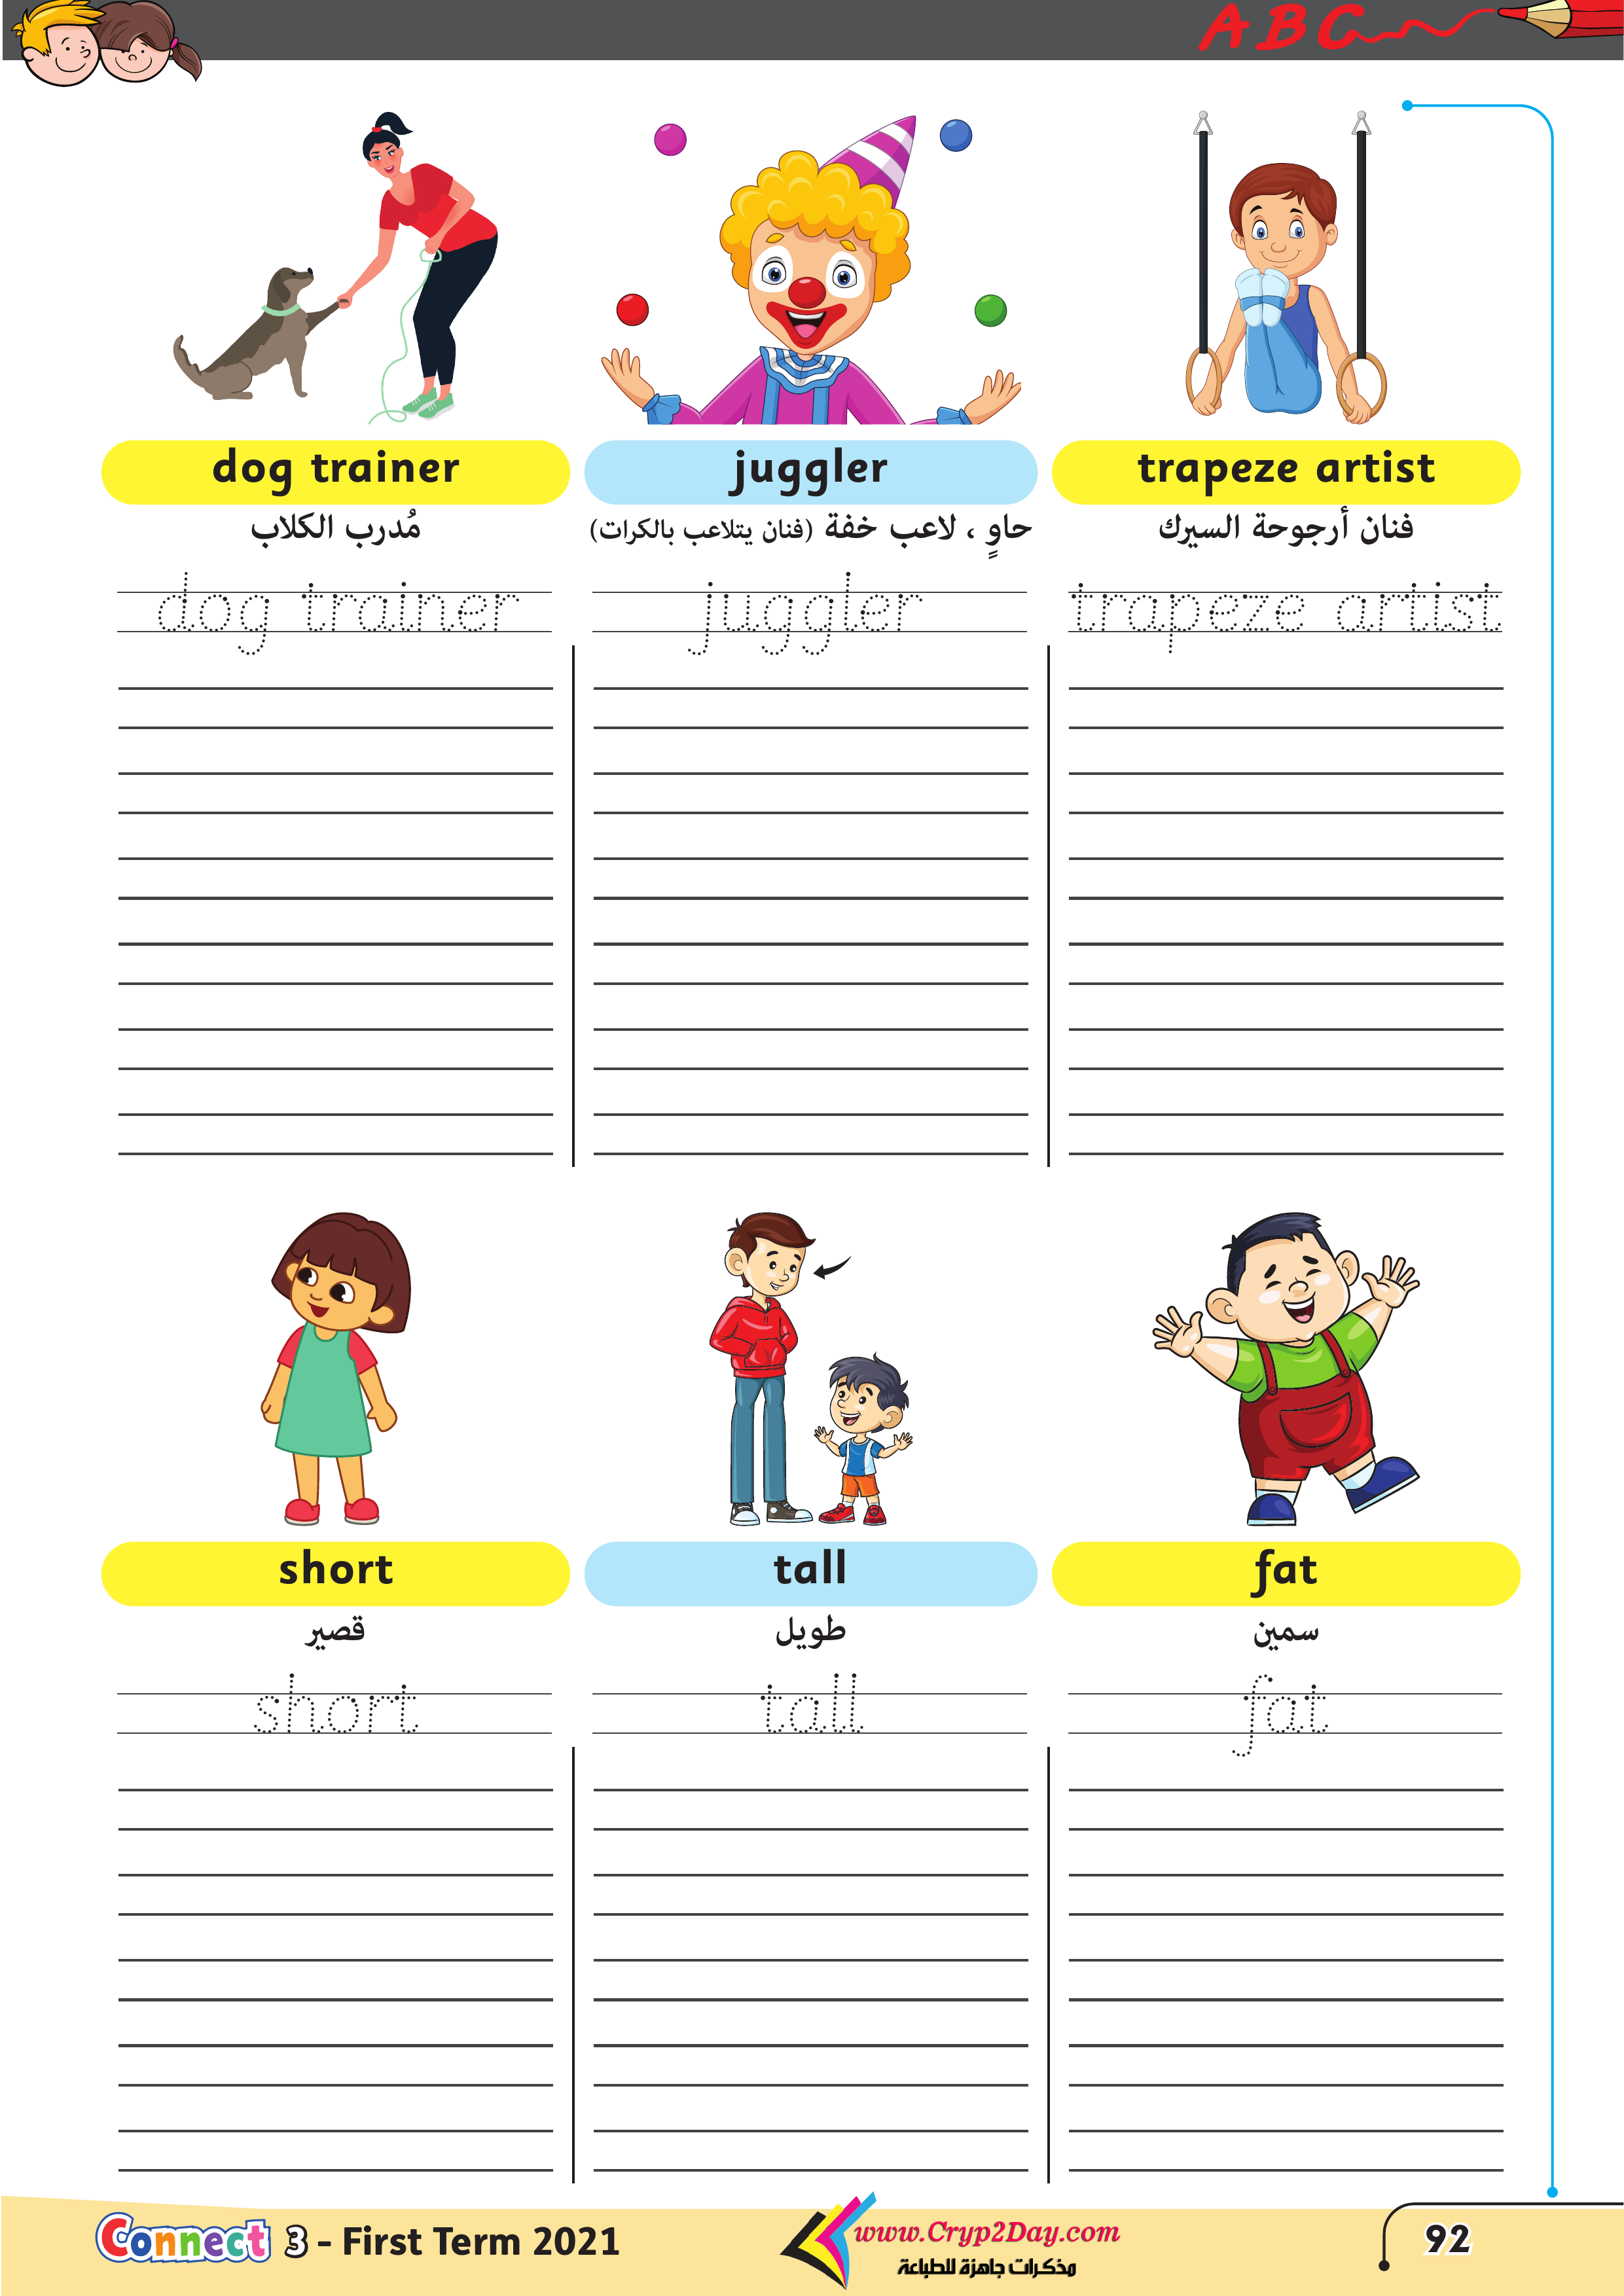 ABC
dog trainer
juggler
trapeze artist
مُدرب الكلاب
حاوٍ ، لاعب خفة (فنان يتلاعب بالكرات)
فنان أرجوحة السيرك
dog trainer
juggler
trapeze artist
short
tall
fat
قصير
طويل
سمين
short
tall
fat
Connect 3 - First Term 2021
www.Cryp2Day.com
مذكرات جاهزة للطباعة
92